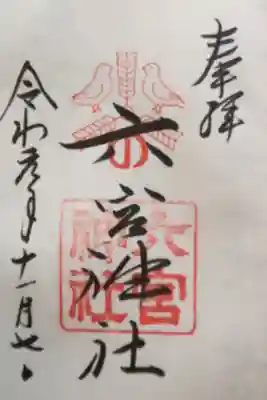 奉拝
六宮神社
六宮神社
令和彦年十一月七日